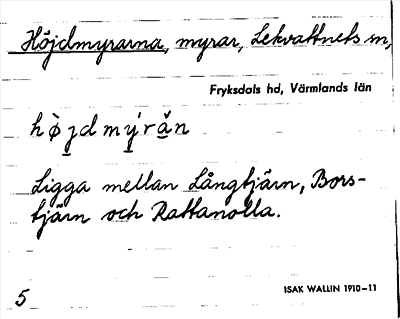 Höjdmyrarna, myrar, Lekvattnets sn,
Fryksdals hd, Värmlands län
hòjdmýrǎn
Ligga mellan Långtjärn, Bors-
tjärn och Rattanolla.
5
ISAK WALLIN 1910–11